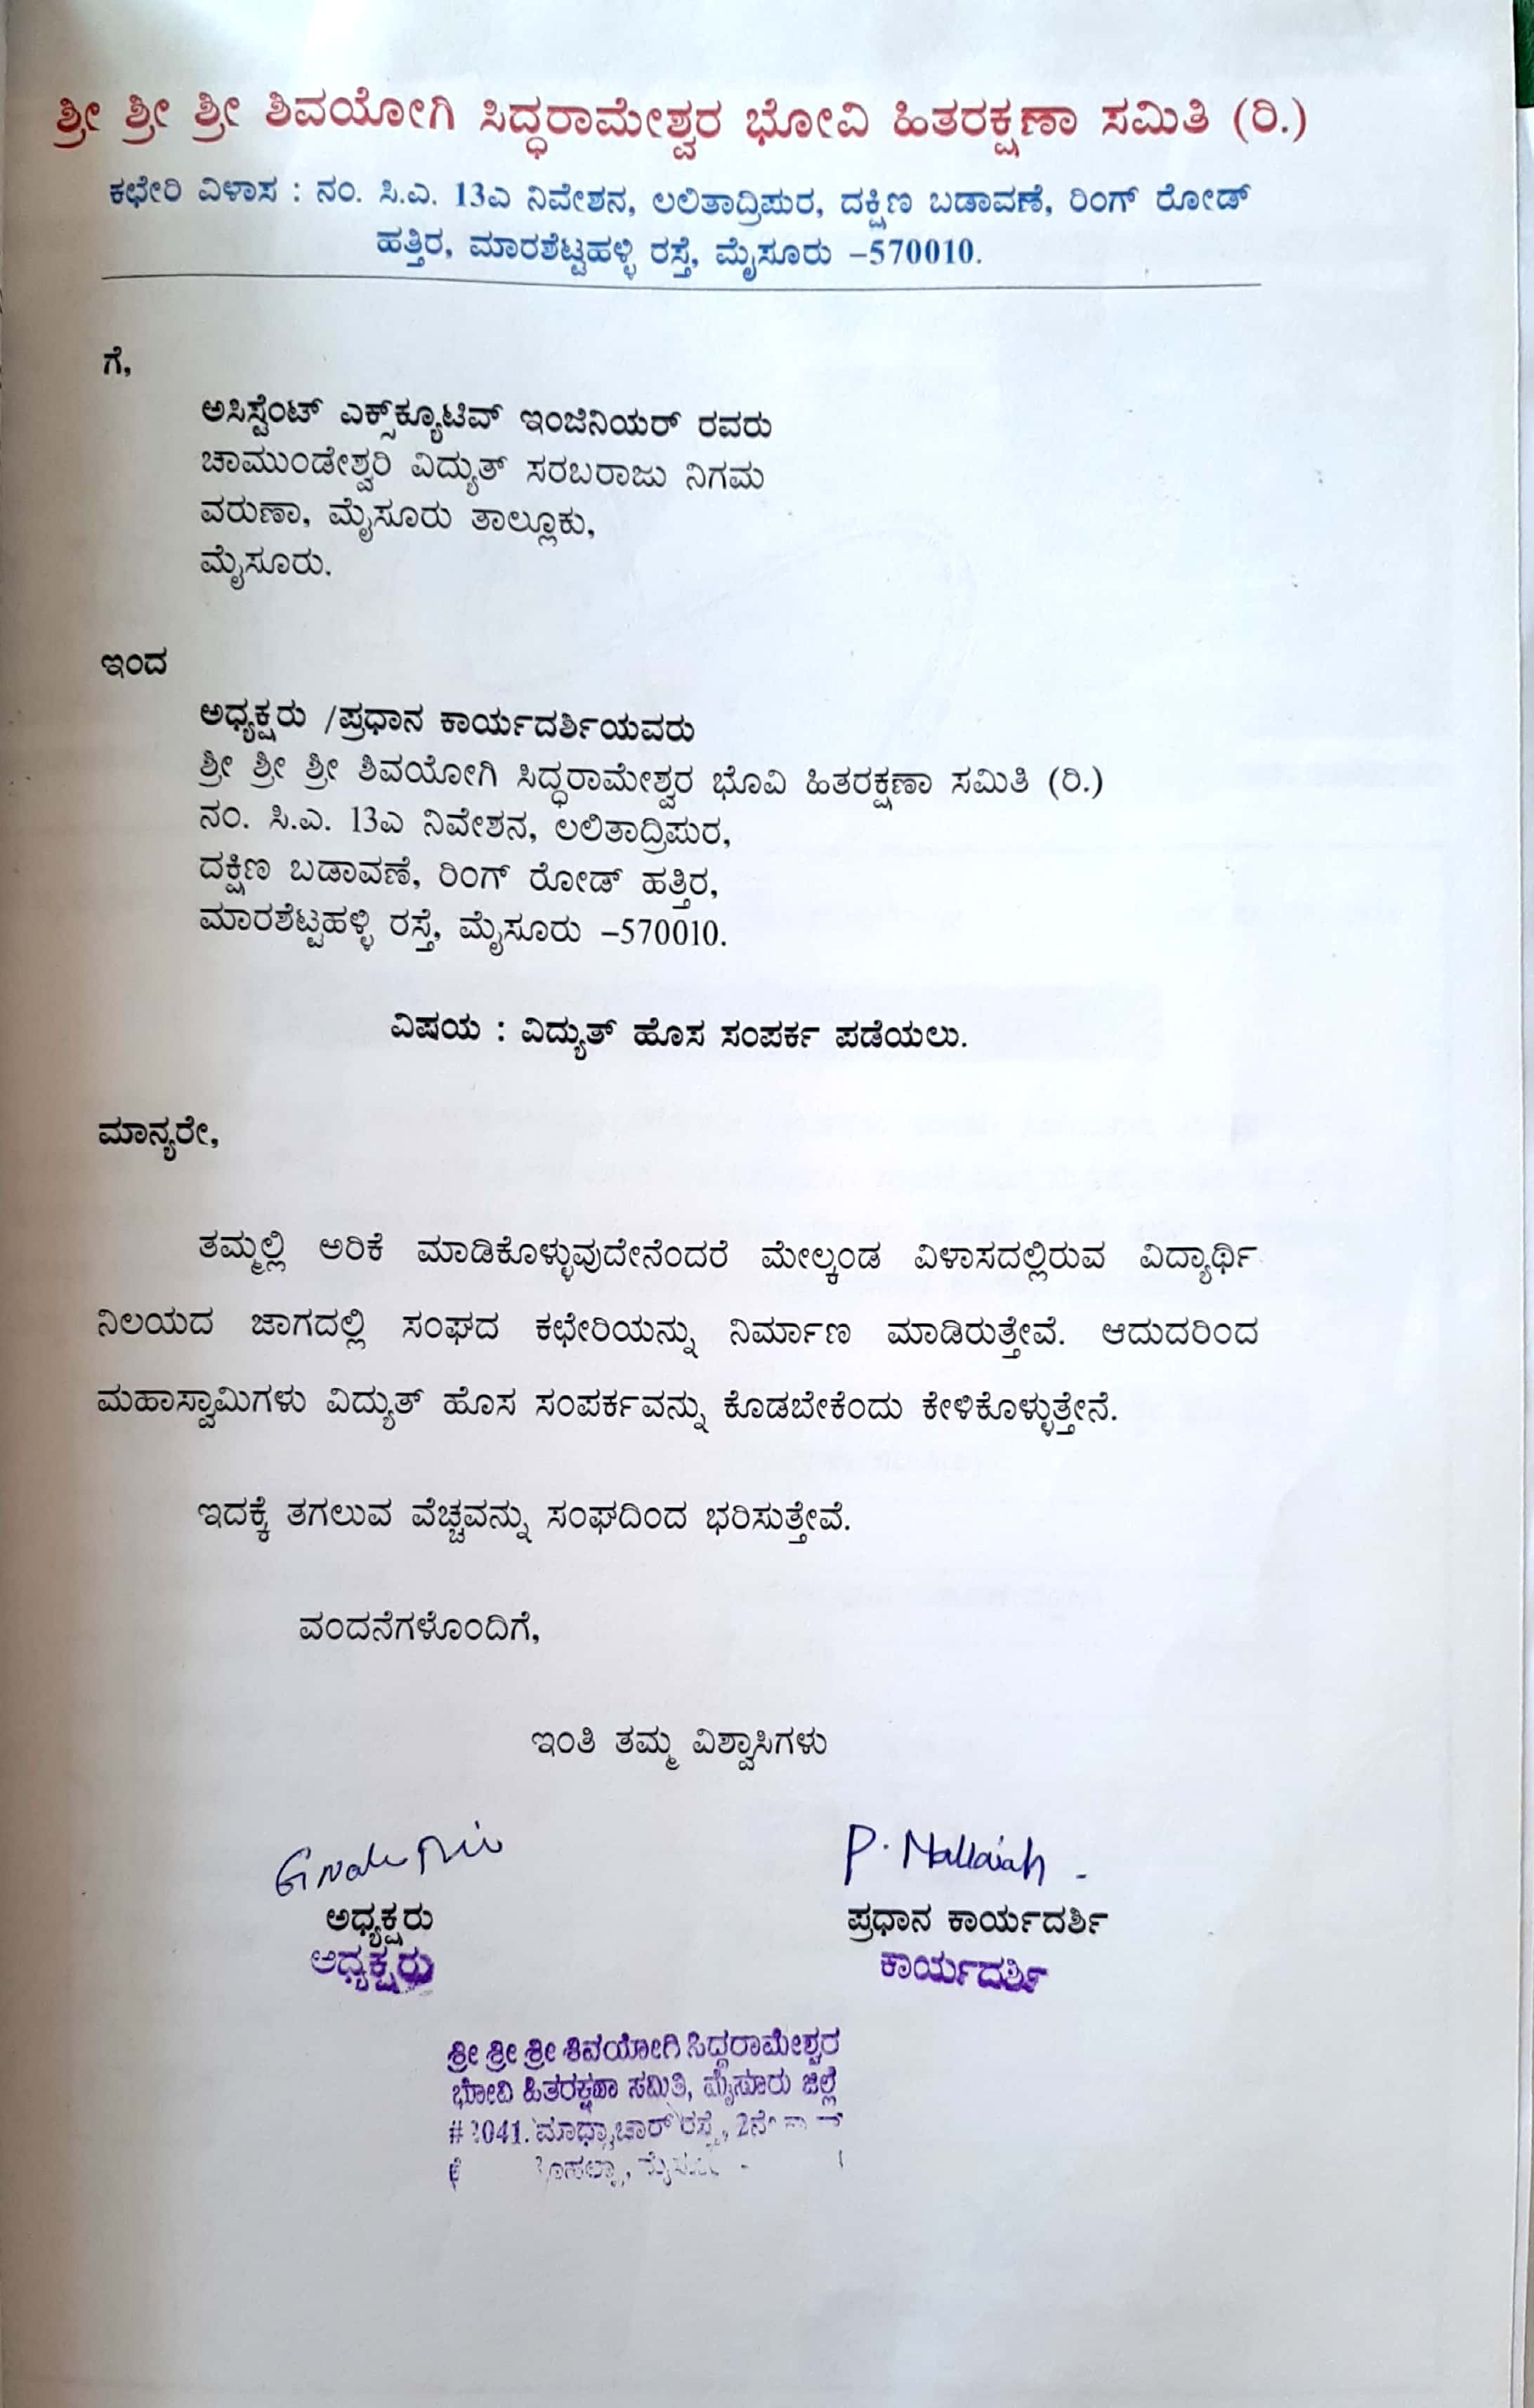 ಶ್ರೀ ಶ್ರೀ ಶ್ರೀ ಶಿವಯೋಗಿ ಸಿದ್ಧರಾಮೇಶ್ವರ ಭೋವಿ ಹಿತರಕ್ಷಣಾ ಸಮಿತಿ (ರಿ.)
ಕಛೇರಿ ವಿಳಾಸ : ನಂ. ಸಿ.ಎ. 13ಎ ನಿವೇಶನ, ಲಲಿತಾದ್ರಿಪುರ, ದಕ್ಷಿಣ ಬಡಾವಣೆ, ರಿಂಗ್ ರೋಡ್
ಹತ್ತಿರ, ಮಾರಶೆಟ್ಟಹಳ್ಳಿ ರಸ್ತೆ, ಮೈಸೂರು –570010.
ಗೆ,
ಅಸಿಸ್ಟೆಂಟ್ ಎಕ್ಸ್‌ಕ್ಯೂಟಿವ್ ಇಂಜಿನಿಯರ್ ರವರು
ಚಾಮುಂಡೇಶ್ವರಿ ವಿದ್ಯುತ್ ಸರಬರಾಜು ನಿಗಮ
ವರುಣಾ, ಮೈಸೂರು ತಾಲ್ಲೂಕು,
ಮೈಸೂರು.
ಇಂದ
ಅಧ್ಯಕ್ಷರು /ಪ್ರಧಾನ ಕಾರ್ಯದರ್ಶಿಯವರು
ಶ್ರೀ ಶ್ರೀ ಶ್ರೀ ಶಿವಯೋಗಿ ಸಿದ್ಧರಾಮೇಶ್ವರ ಭೊವಿ ಹಿತರಕ್ಷಣಾ ಸಮಿತಿ (ರಿ.)
ನಂ. ಸಿ.ಎ. 13ಎ ನಿವೇಶನ, ಲಲಿತಾದ್ರಿಪುರ,
ದಕ್ಷಿಣ ಬಡಾವಣೆ, ರಿಂಗ್ ರೋಡ್ ಹತ್ತಿರ,
ಮಾರಶೆಟ್ಟಹಳ್ಳಿ ರಸ್ತೆ, ಮೈಸೂರು –570010.
ವಿಷಯ : ವಿದ್ಯುತ್ ಹೊಸ ಸಂಪರ್ಕ ಪಡೆಯಲು.
ಮಾನ್ಯರೇ,
ತಮ್ಮಲ್ಲಿ ಅರಿಕೆ ಮಾಡಿಕೊಳ್ಳುವುದೇನೆಂದರೆ ಮೇಲ್ಕಂಡ ವಿಳಾಸದಲ್ಲಿರುವ ವಿದ್ಯಾರ್ಥಿ
ನಿಲಯದ ಜಾಗದಲ್ಲಿ ಸಂಘದ ಕಛೇರಿಯನ್ನು ನಿರ್ಮಾಣ ಮಾಡಿರುತ್ತೇವೆ. ಆದುದರಿಂದ
ಮಹಾಸ್ವಾಮಿಗಳು ವಿದ್ಯುತ್ ಹೊಸ ಸಂಪರ್ಕವನ್ನು ಕೊಡಬೇಕೆಂದು ಕೇಳಿಕೊಳ್ಳುತ್ತೇನೆ.
ಇದಕ್ಕೆ ತಗಲುವ ವೆಚ್ಚವನ್ನು ಸಂಘದಿಂದ ಭರಿಸುತ್ತೇವೆ.
ವಂದನೆಗಳೊಂದಿಗೆ,
ಇಂತಿ ತಮ್ಮ ವಿಶ್ವಾಸಿಗಳು
P. Mallaiah
ಅಧ್ಯಕ್ಷರು ಪ್ರಧಾನ ಕಾರ್ಯದರ್ಶಿ
ಅಧ್ಯಕ್ಷರು ಕಾರ್ಯದರ್ಶಿ
ಶ್ರೀ ಶ್ರೀ ಶ್ರೀ ಶಿವಯೋಗಿ ಸಿದ್ದರಾಮೇಶ್ವರ
ಭೋವಿ ಹಿತರಕ್ಷಣಾ ಸಮಿತಿ, ಮೈಸೂರು ಜಿಲ್ಲೆ
ರಸ್ತೆ, 2ನೇ